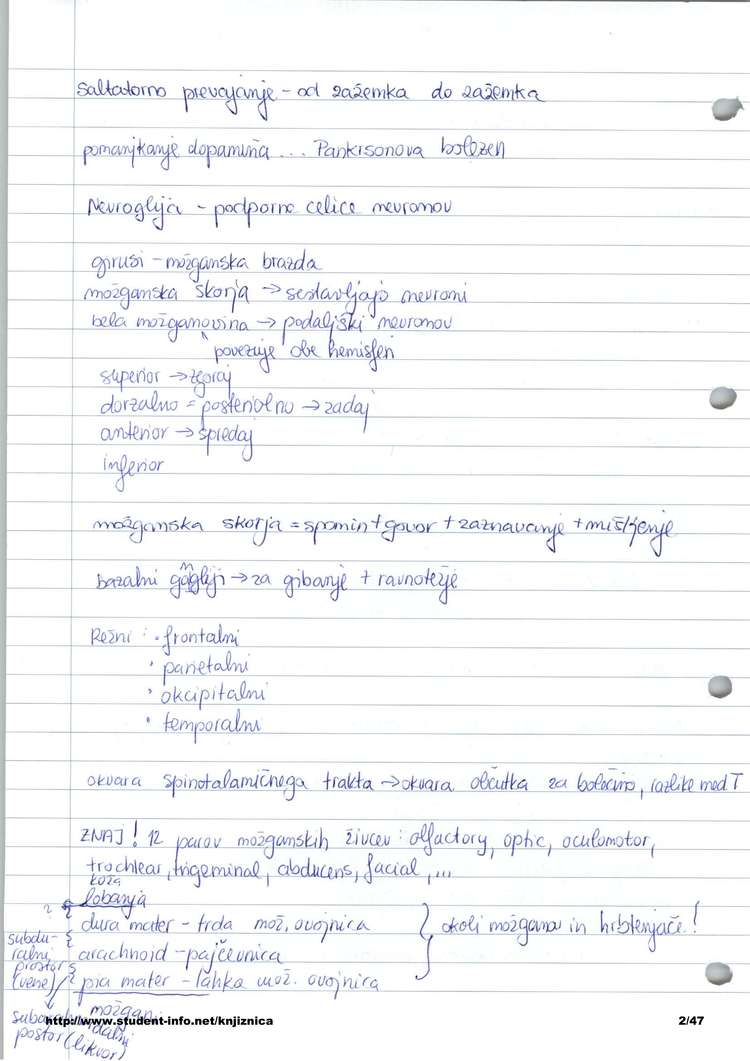 saltatorno prevajanje - od zažemka do zažemka
pomanjkanje dopamina ... Pankisonova bolezen
Nevroglija - podporne celice nevronov
girusi - možganska brazda
možganska skorja → sestavljajo nevroni
bela možganovina → podaljški nevronov
povezuje obe hemisferi
superior → zgoraj
dorzalno = posteriorno → zadaj
anterior → spredaj
inferior
možganska skorja = spomin + govor + zaznavanje + mišljenje
bazalni gangliji → za gibanje + ravnotežje
Režni : • frontalni
• parietalni
• okcipitalni
• temporalni
okvara spinotalamičnega trakta → okvara občutka za bolečino, razlike med T
ZNAJ! 12 parov možganskih živcev : olfactory, optic, oculomotor,
trochlear, trigeminal, abducens, facial, ...
koža
? lobanja
dura mater - trda mož. ovojnica } okoli možganov in hrbtenjače!
subdu-
ralni
prostor
(vene)
arachnoid - pajčevnica
pia mater - lahka mož. ovojnica
možgani
http://www.student-info.net/knjiznica
2/47
postor (likvor)